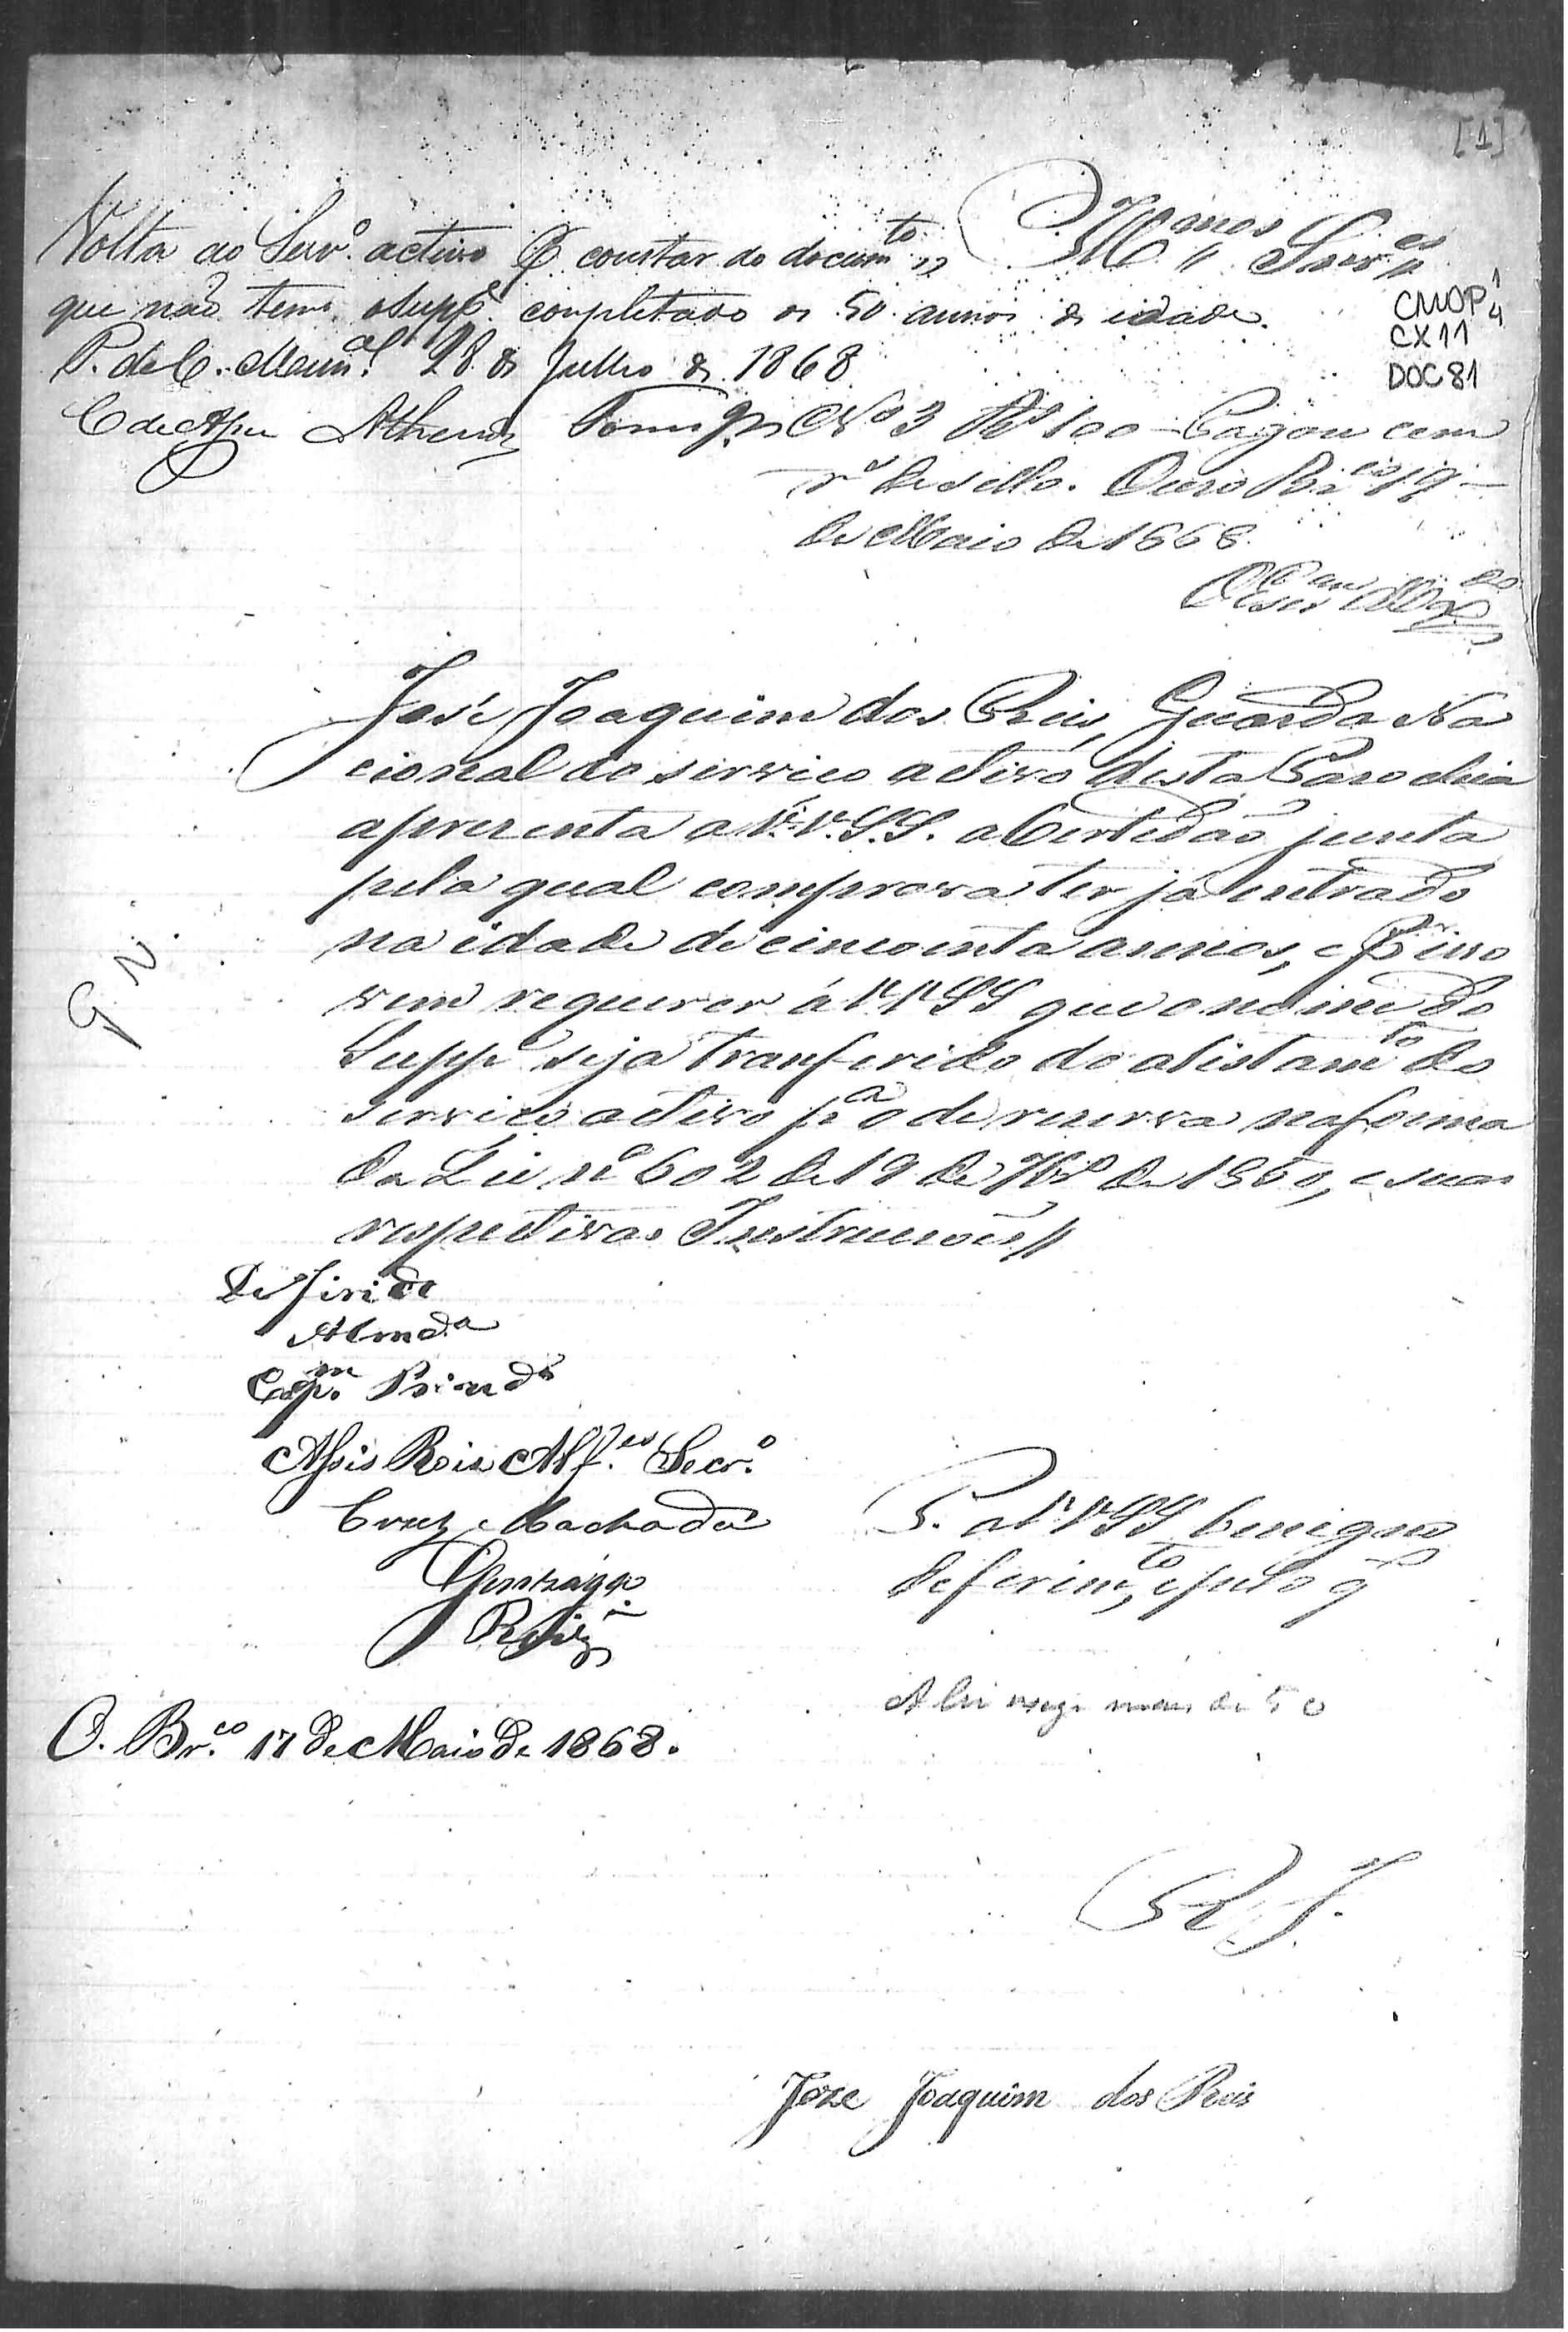 [1]
Volta ao Serv.º activo P. constar do docum.to
que não tem o Supp.e completado os 50 annos de idade.
P. de C. Mun.al 28 de Julho de 1868
Athen
Ill.mos Snr.es
CMOP 1/4
CX 11
DOC 81
Nº 3 Rs 100 Pagou cem
rs de sello. Ouro Br.co 19
de Maio de 1868.
José Joaquim dos Reis, Guarda Na
cional do serviço activo desta Parochia
aprezenta a V.V.S.S. a Certidão junta
pela qual comprova ter já entrado
na idade de cincoenta annos, e Pr isso
vem requerer á VVSS que o nome do
Suppe seja tranferido do alistamto do
serviço activo pa o de reserva na forma
da Lei nº 602 de 19 de 7br de 1850, e suas
respectivas Instrucções //
G N.
Defirido
Almda
Cap.m
Assis Reis Alf.es Secr.º
Cruz Machado
Gonzaga
O. Br.co 17 de Maio de 1868.
P. a VVSS benigno
deferimto, e pelo q
A lei exige mais de 50
E R J.
Joze Joaquim dos Reis